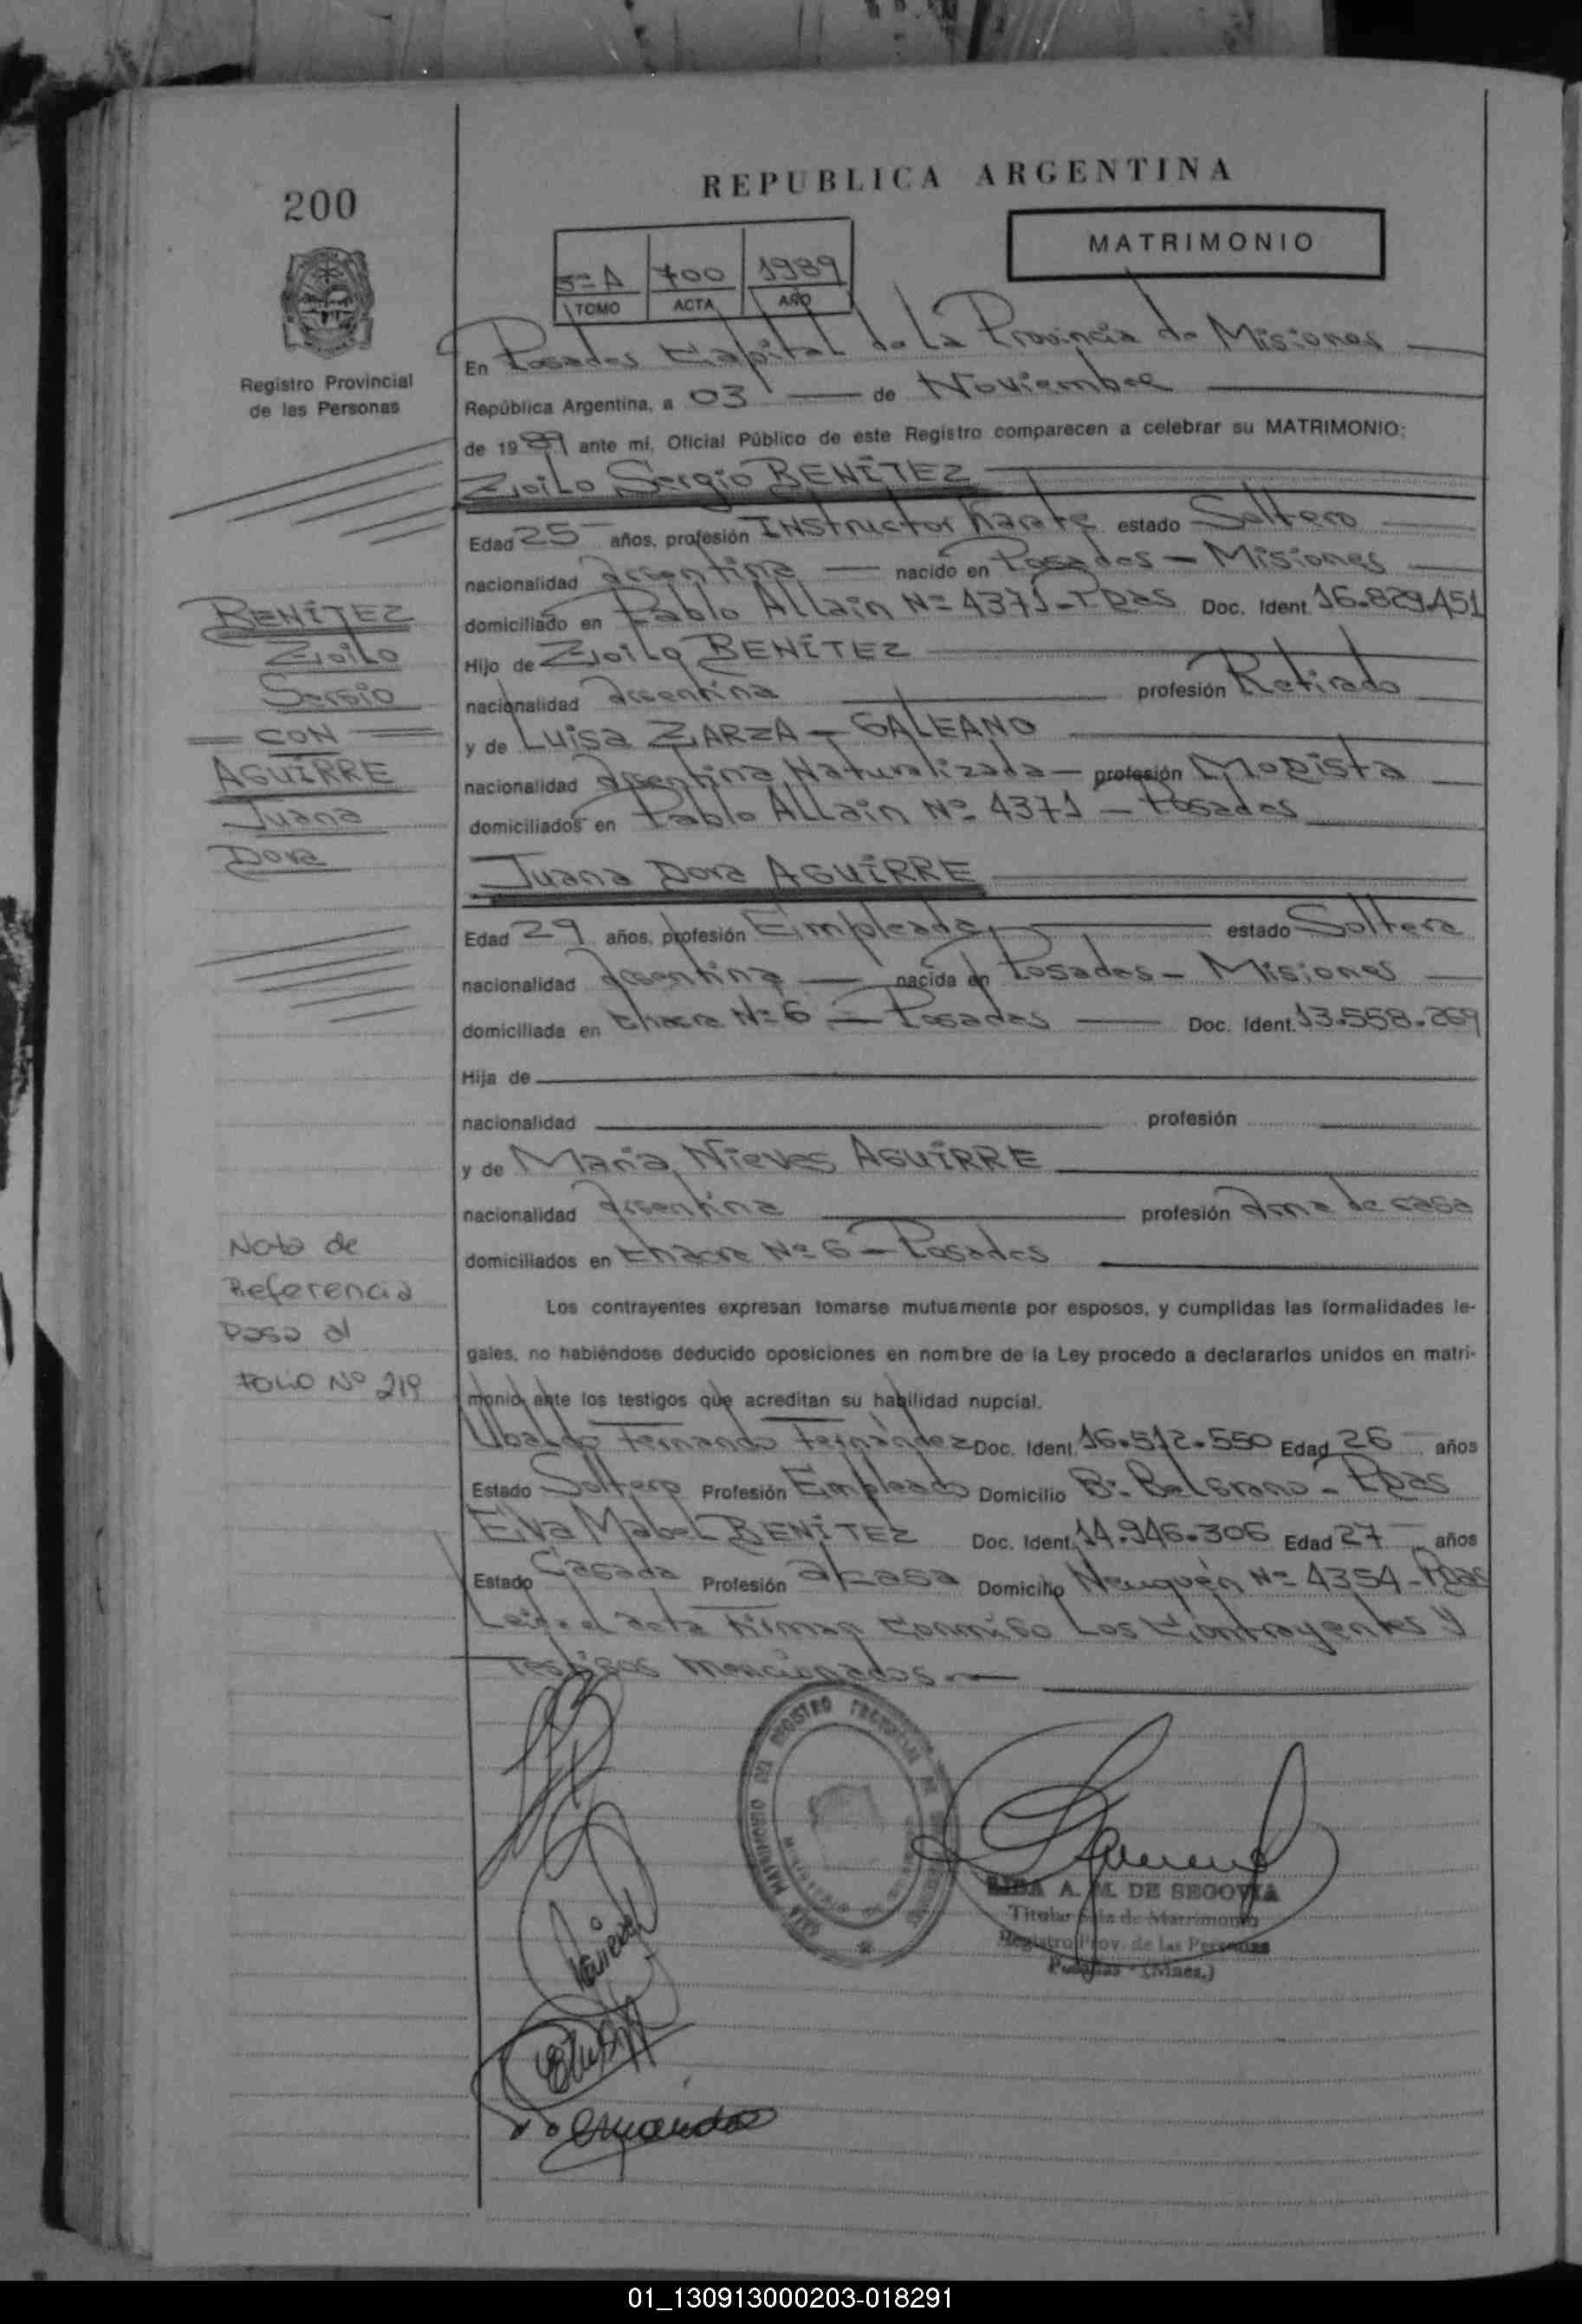 200
REPUBLICA ARGENTINA
MATRIMONIO
5=A 700 1989
TOMO ACTA AÑO
Registro Provincial
de las Personas
En Posadas Capital de La Provincia de Misiones
República Argentina, a 03 de Noviembre
de 1989 ante mí, Oficial Público de este Registro comparecen a celebrar su MATRIMONIO:
Zoilo Sergio BENÍTEZ
Edad 25 años, profesión Instructor Karate estado Soltero
nacionalidad Argentina nacido en Posadas - Misiones
domiciliado en Pablo Allain Nº 4371 - Pdas Doc. Ident. 16.829.451
Hijo de Zoilo BENÍTEZ
nacionalidad Argentina profesión Retirado
y de Luisa ZARZA - GALEANO
nacionalidad Argentina Naturalizada - profesión Modista
domiciliados en Pablo Allain Nº 4371 - Posadas
BENÍTEZ
Zoilo
Sergio
= CON =
AGUÍRRE
Juana
Dora
Juana Dora AGUÍRRE
Edad 29 años, profesión Empleada estado Soltera
nacionalidad Argentina nacida en Posadas - Misiones
domiciliada en Chacra Nº 6 - Posadas Doc. Ident. 13.558.269
Hija de
nacionalidad profesión
y de María Nieves AGUÍRRE
nacionalidad Argentina profesión Ama de casa
domiciliados en Chacra Nº 6 - Posadas
Nota de
Referencia
Pasa al
FOLIO Nº 219
Los contrayentes expresan tomarse mutuamente por esposos, y cumplidas las formalidades le-
gales, no habiéndose deducido oposiciones en nombre de la Ley procedo a declararlos unidos en matri-
monio ante los testigos que acreditan su habilidad nupcial.
Ubaldo Fernando Fernández Doc. Ident. 16.512.550 Edad 26 años
Estado Soltero Profesión Empleado Domicilio Bº Belgrano - Pdas
Elva Mabel BENÍTEZ Doc. Ident. 14.946.306 Edad 27 años
Estado Casada Profesión Domicilio Neuquén Nº 4354 - Pdas
Leída el acta Firman Conmigo Los Contrayentes y
Testigos mencionados
A. M. DE SEGOVIA
Titular Sala de Matrimonio
Registro Prov. de las Personas
Posadas - (Mnes.)
01_130913000203-018291